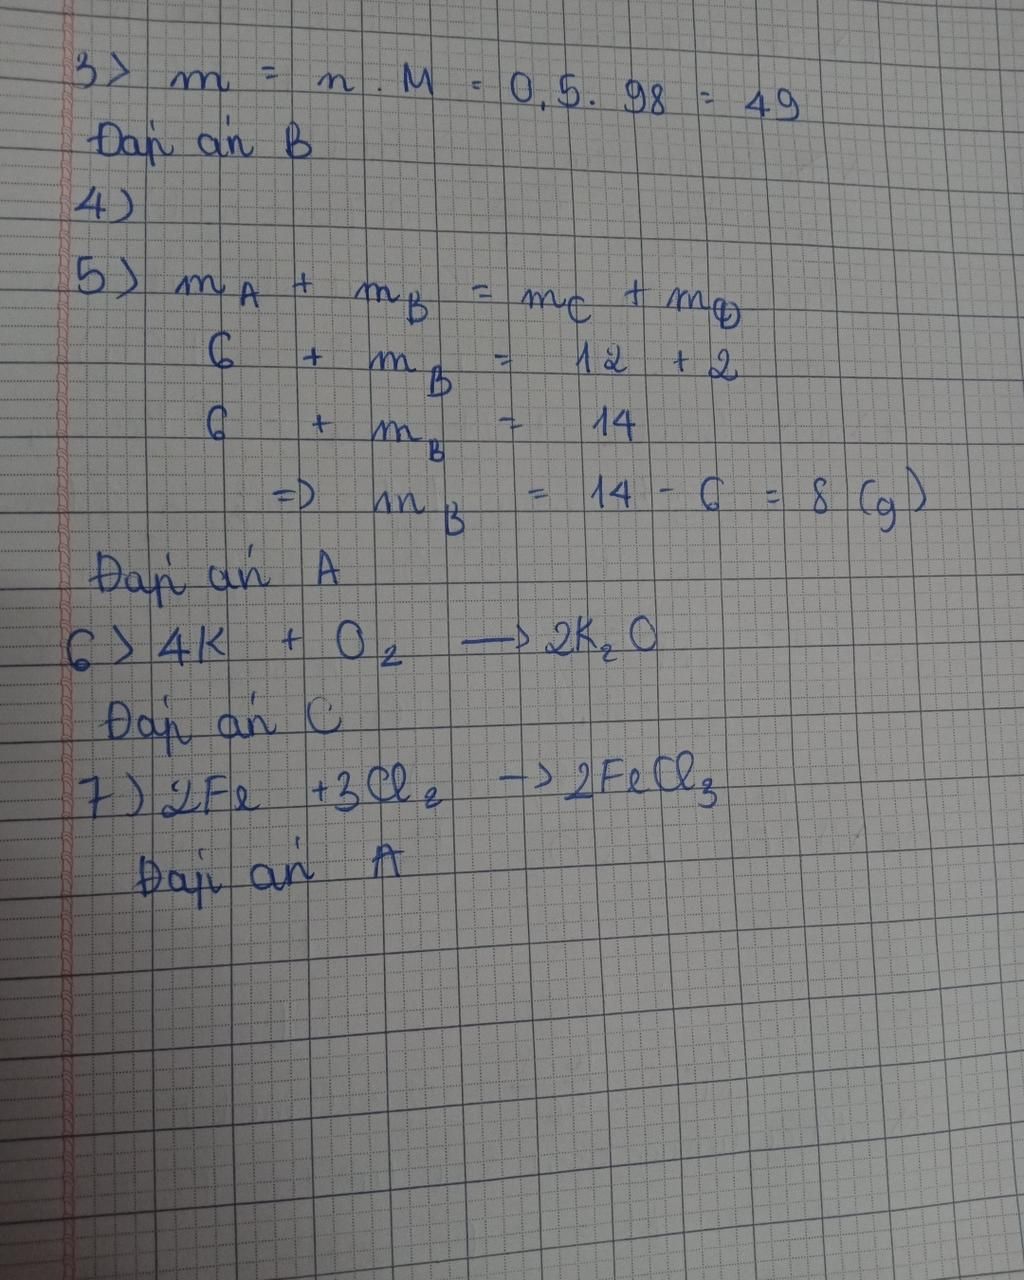 3> m = n . M = 0,5. 98 = 49
Đáp án B
4)
5) mA + mB = mC + mD
6 + mB = 12 + 2
6 + mB = 14
=> mB = 14 - 6 = 8 (g)
Đáp án A
6> 4K + O2 → 2K2O
Đáp án C
7) 2Fe +3Cl2 → 2FeCl3
Đáp án A